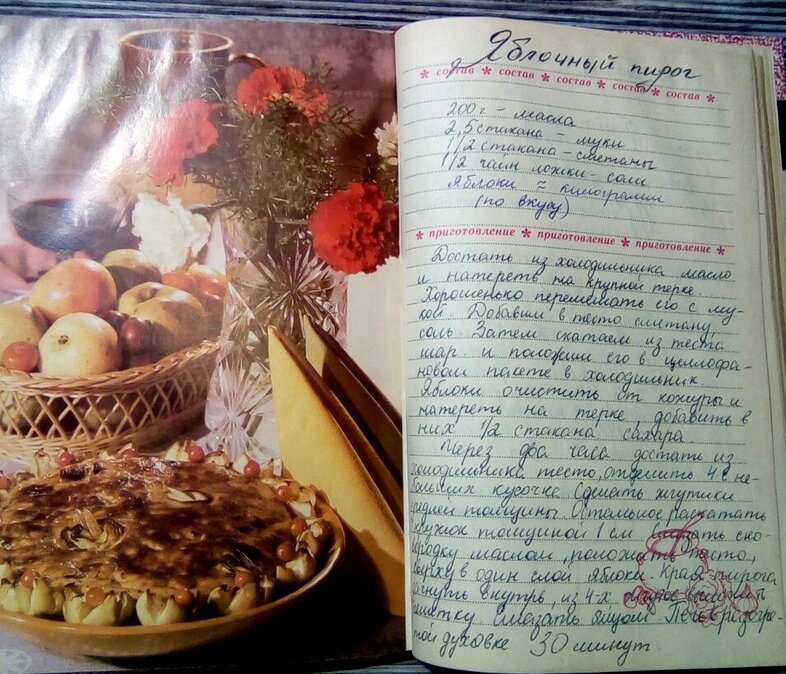 Яблочный пирог
* состав * состав * состав * состав * состав *
200 г - масла
2,5 стакана - муки
1/2 стакана - сметаны
1/2 чайн ложки - соли
Яблоки ≈ килограмм
(по вкусу)
* приготовление * приготовление * приготовление *
Достать из холодильника масло
и натереть на крупной терке
Хорошенько перемешать его с му-
кой. Добавим в тесто сметану,
соль. Затем скатаем из теста
шар и положим его в целлофа-
новом пакете в холодильник.
Яблоки очистить от кожуры и
натереть на терке, добавить в
них 1/2 стакана сахара.
Через два часа достать из
холодильника тесто, отделить 4 не-
больших кусочка. Сделать жгутики
средней толщины. Остальное раскатать
кружок толщиной 1 см смазать ско-
вородку маслом, положить тесто,
сверху в один слой яблоки. Края пирога
загнуть внутрь, из 4-х
решетку смазать яйцом. Печь в разогре-
той духовке 30 минут.